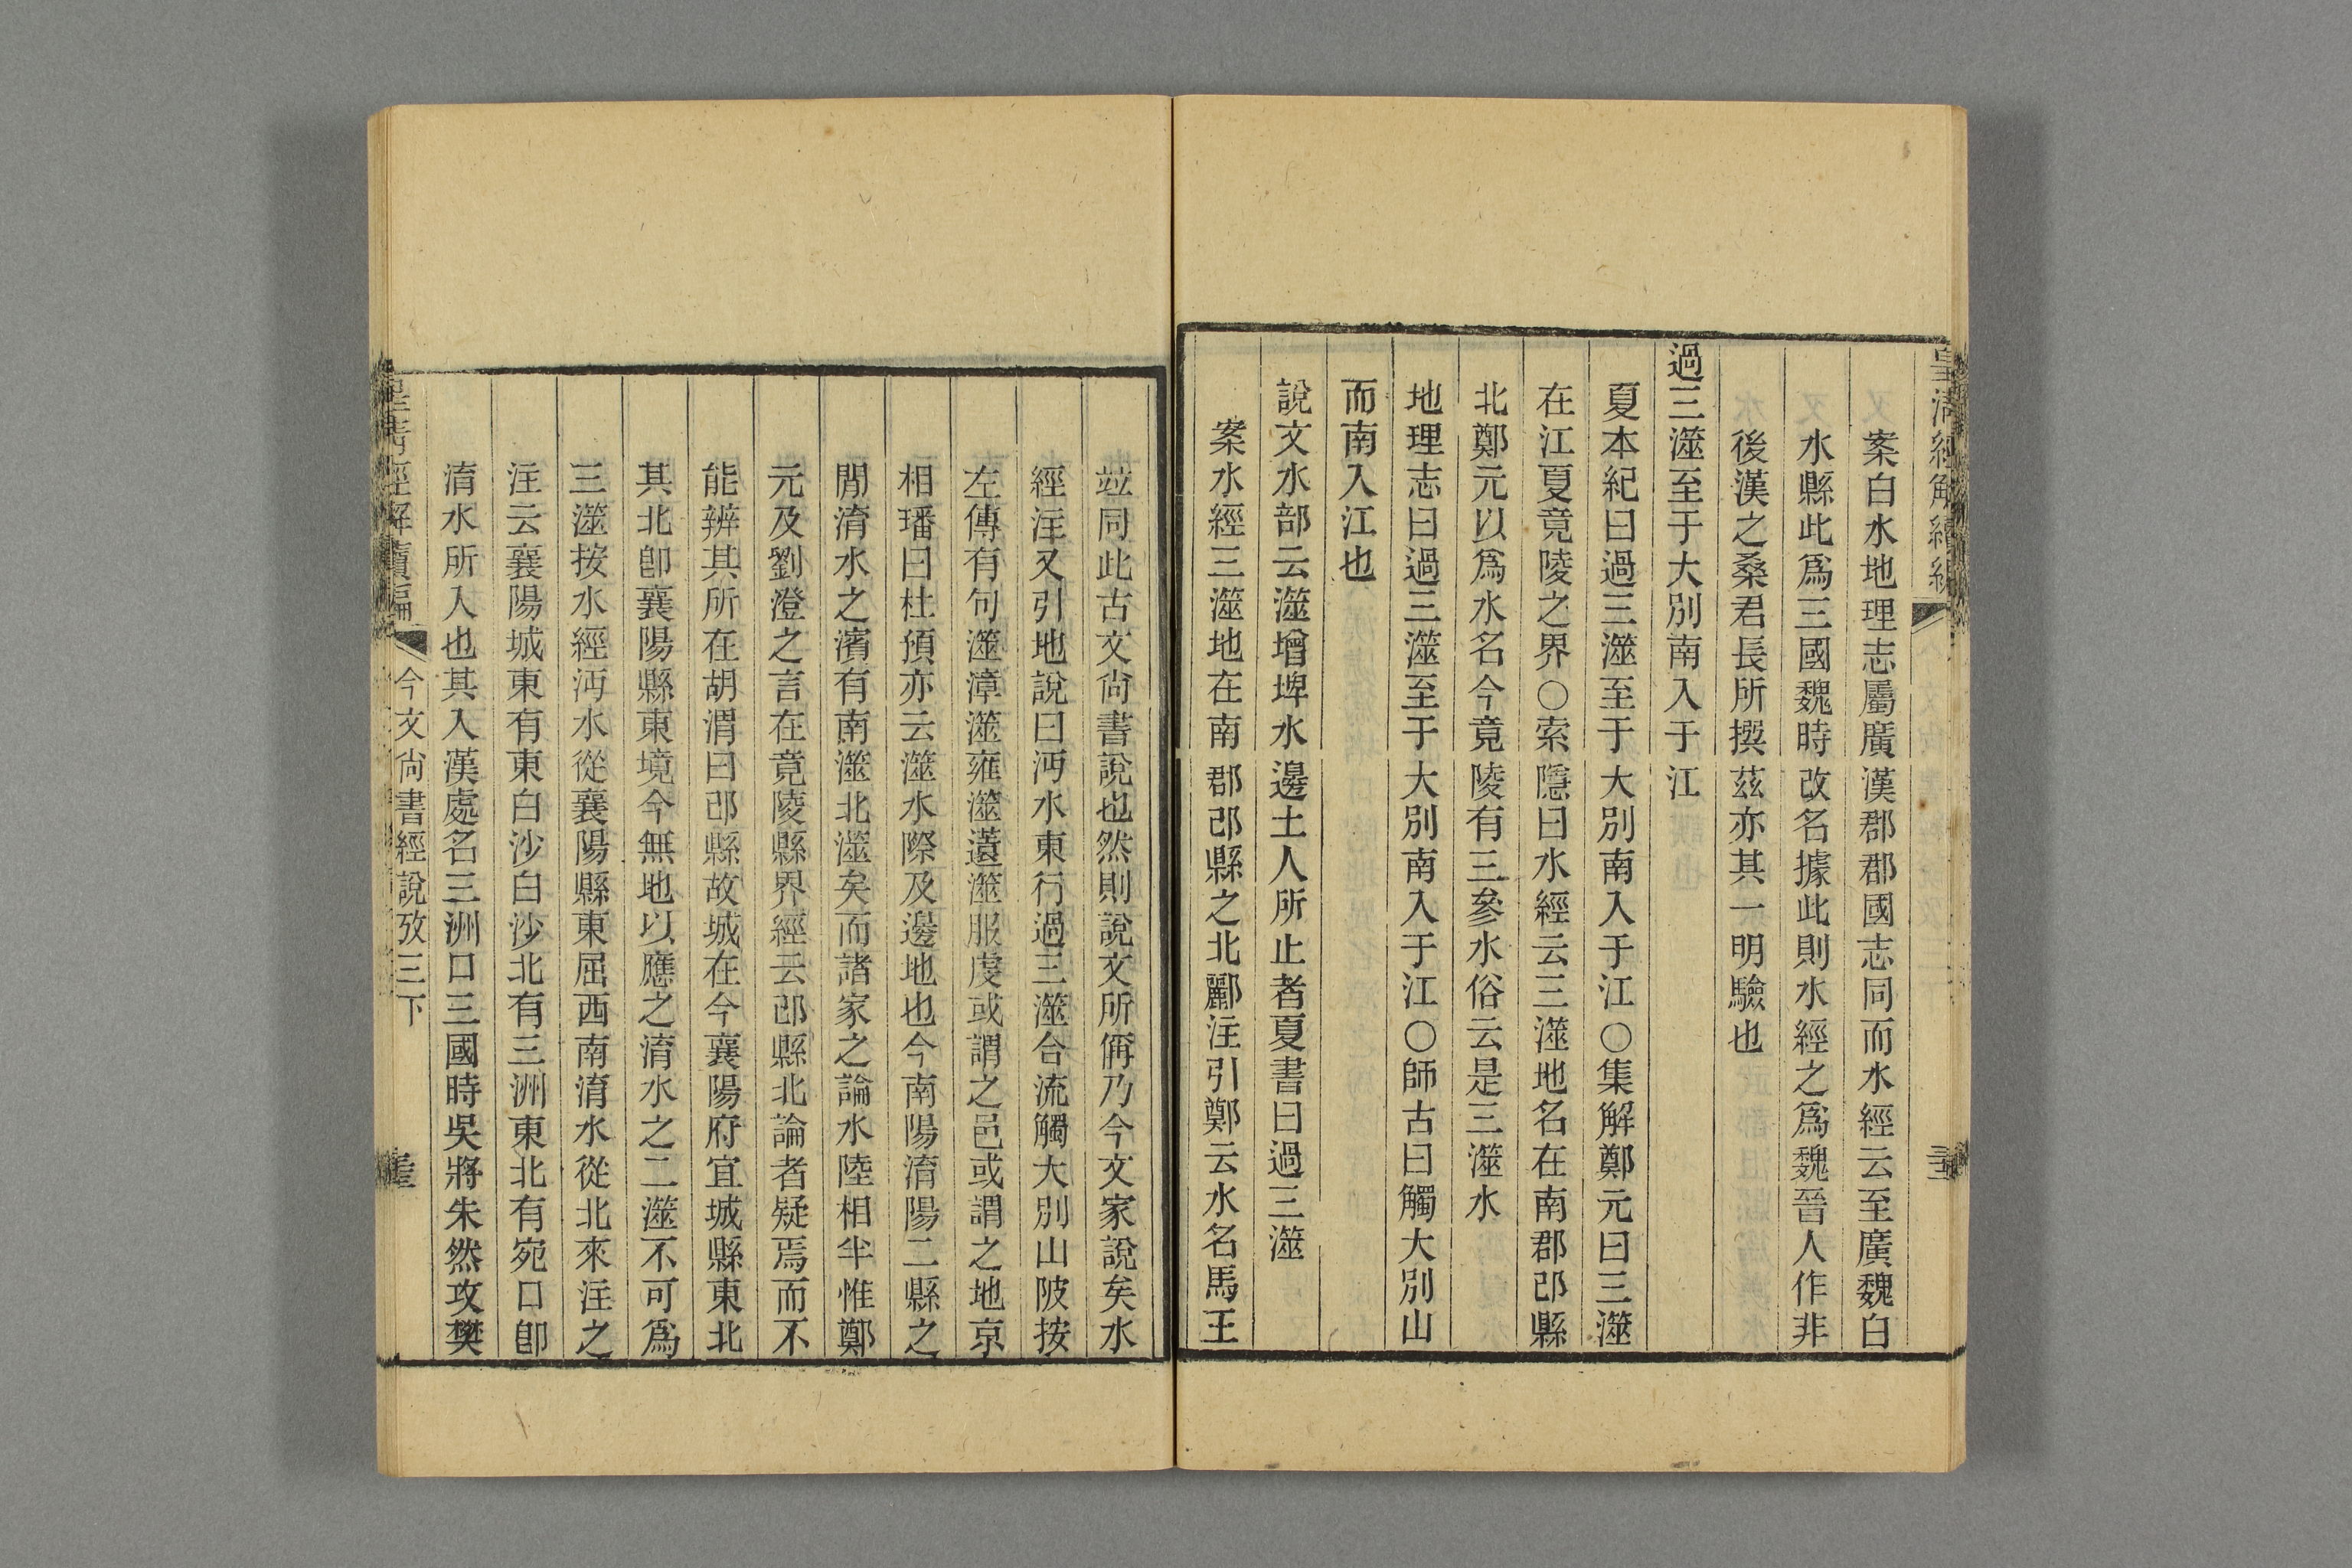 皇清經解續編
案白水地理志屬廣漢郡郡國志同而水經云至廣魏白
水縣此爲三國魏時改名據此則水經之爲魏晉人作非
後漢之桑君長所撰茲亦其一明驗也
過三澨至于大別南入于江
夏本紀曰過三澨至于大別南入于江○集解鄭元曰三澨
在江夏竟陵之界○索隱曰水經云三澨地名在南郡邔縣
北鄭元以爲水名今竟陵有三參水俗云是三澨水
地理志曰過三澨至于大別南入于江○師古曰觸大別山
而南入江也
說文水部云澨增埤水邊土人所止者夏書曰過三澨
案水經三澨地在南郡邔縣之北酈注引鄭云水名馬王
竝同此古文尙書說也然則說文所偁乃今文家說矣水
經注又引地說曰沔水東行過三澨合流觸大別山陂按
左傳有句澨漳澨雍澨薳澨服虔或謂之邑或謂之地京
相璠曰杜預亦云澨水際及邊地也今南陽淯陽二縣之
閒淯水之濱有南澨北澨矣而諸家之論水陸相半惟鄭
元及劉澄之言在竟陵縣界經云邔縣北論者疑焉而不
能辨其所在胡渭曰邔縣故城在今襄陽府宜城縣東北
其北卽襄陽縣東境今無地以應之淯水之二澨不可爲
三澨按水經沔水從襄陽縣東屈西南淯水從北來注之
注云襄陽城東有東白沙白沙北有三洲東北有宛口卽
淯水所入也其入漢處名三洲口三國時吳將朱然攻樊
皇清經解續編
今文尙書經說攷三下